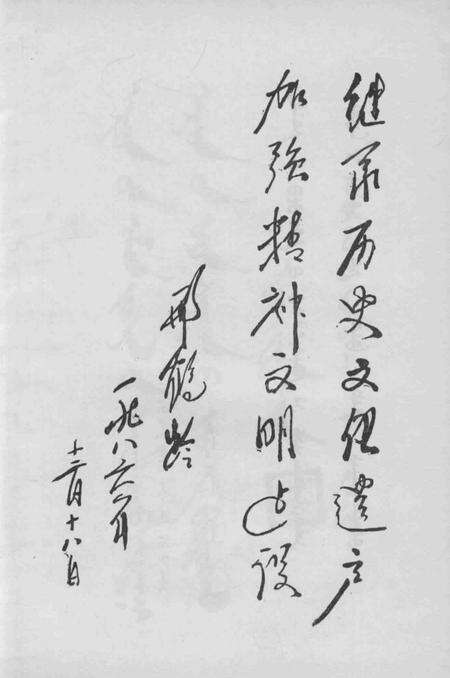 继承历史文化遗产
加强精神文明建设
邢鹤龄
一九八六年
十二月十八日